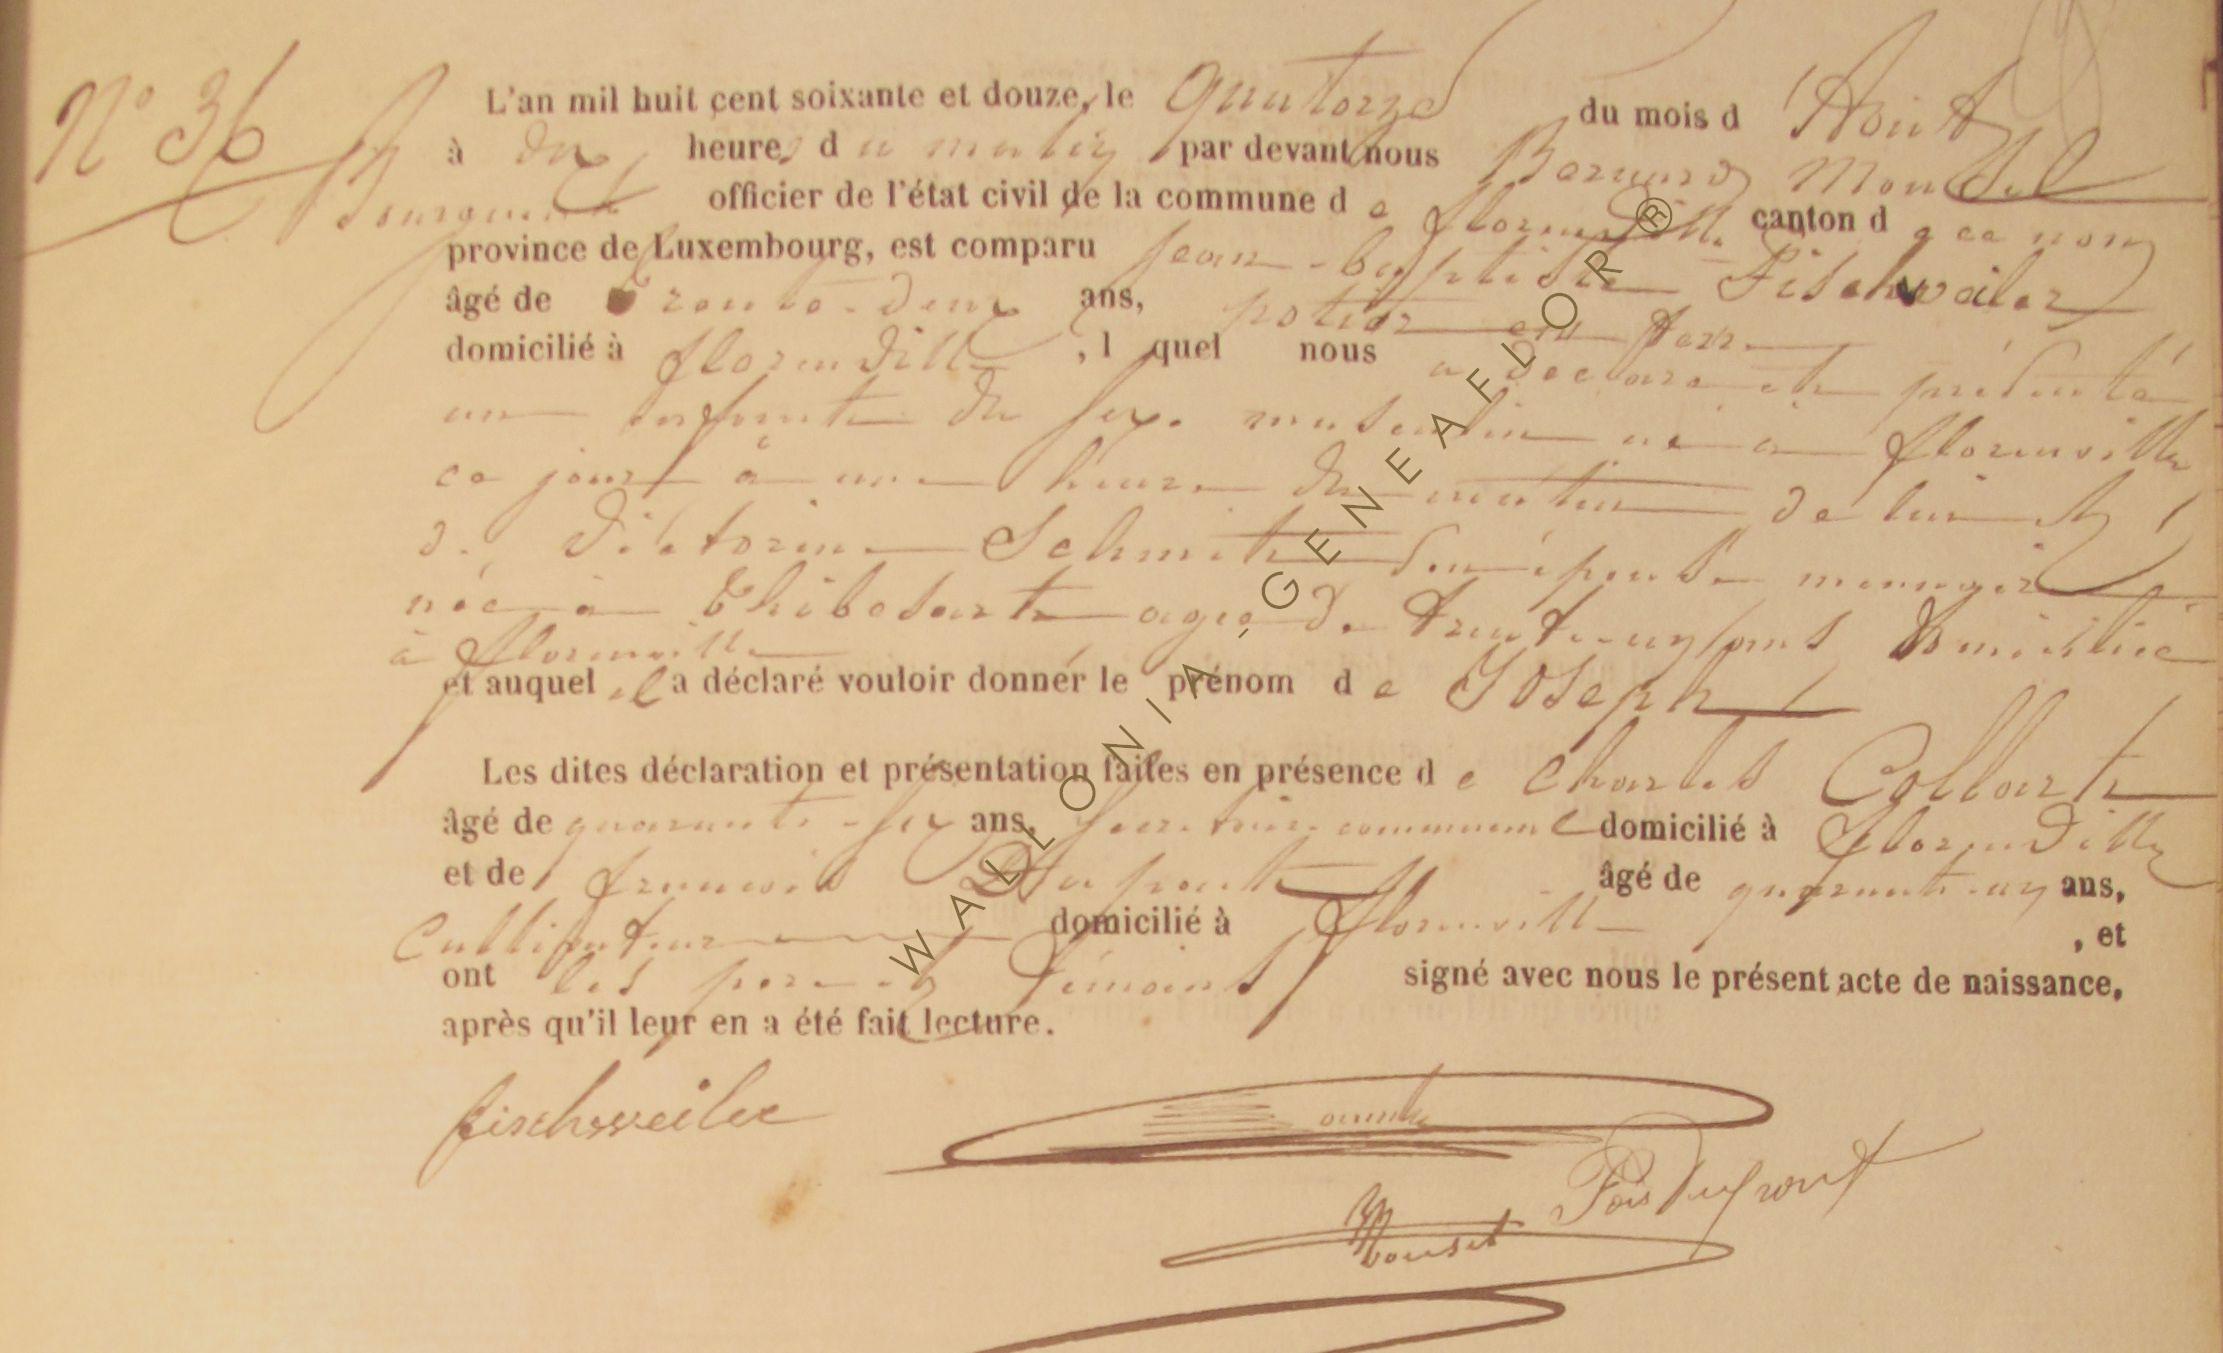 N° 36
L'an mil huit cent soixante et douze, le quatorze du mois d'Août
à dix heures du matin par devant nous Bernard Mousel
Bourgmestre officier de l'état civil de la commune de florenville canton d
province de Luxembourg, est comparu Jean-baptiste Fischweiler
âgé de trente-deux ans, potier en fer
domicilié à florenville, lequel nous a déclaré et présenté
un enfant du sexe masculin né à florenville
ce jour à une heure du matin de lui et
de Victorine Schmit son épouse menagère
née à Thibesart agée de trente-un ans domiciliée
à florenville
et auquel il a déclaré vouloir donner le prénom de Joseph
Les dites déclaration et présentation faites en présence de Charles Collart
âgé de quarante-six ans, secrétaire communal domicilié à florenville
et de françois Dupont âgé de quarante-un ans,
Cultivateur domicilié à florenville, et
ont les père et témoins signé avec nous le présent acte de naissance,
après qu'il leur en a été fait lecture.
fischweiler
Fois Dupont
Mousel
WALLONIA-GENEAFLOR®